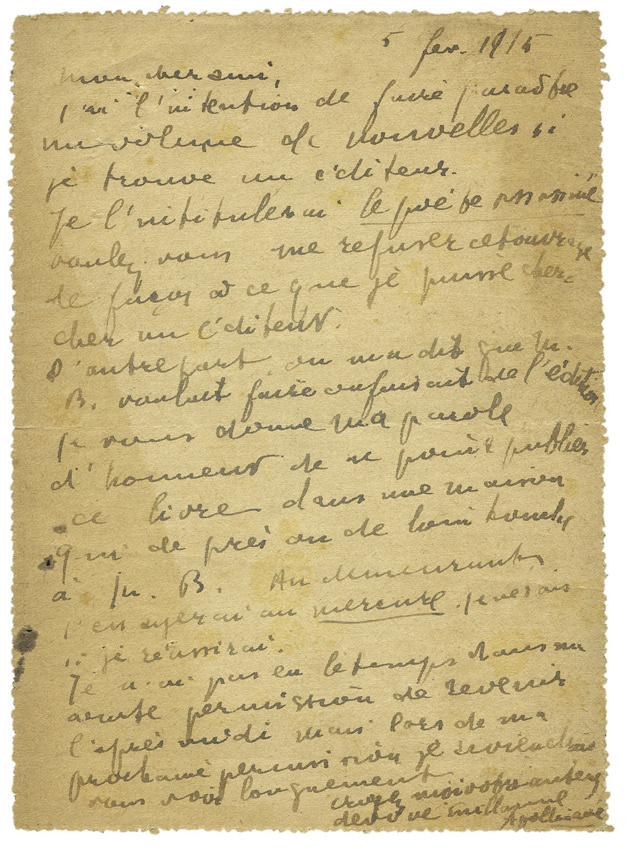 5 fev. 1915
mon cher ami,
j'ai l'intention de faire paraître
un volume de nouvelles si
je trouve un éditeur.
Je l'intitulerai le poète assassiné
voulez vous me refuser cet ouvrage
de façon à ce que je puisse cher-
cher un éditeur.
D'autre part on m'a dit que M.
B. voulait faire ou faisait de l'édition
je vous donne ma parole
d'honneur de ne point publier
ce livre dans une maison
qui de près ou de loin touche
à M. B. Au demeurant
j'essayerai au mercure. je ne sais
si je réussirai.
Je n'ai pas eu le temps dans ma
permission de revenir
l'après midi mais lors de ma
prochaine permission je reviendrai
vous voir longuement
croyez moi votre
dévoué Guillaume
Apollinaire